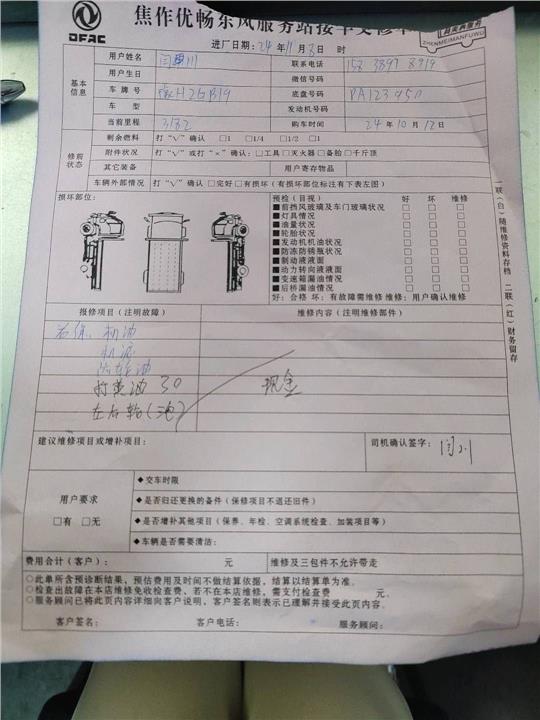 焦作优畅东风服务站接车交修单
DFAC
ZHENMEIMANFUWU
进厂日期：24年11月8日 时
基本信息
用户姓名 联系电话
用户生日 微信号码
车牌号 豫H2GB19 底盘号码 PA123450
车型 发动机号码
当前里程 3182 购车时间 24年10月12日
修前状态
剩余燃料 打“√”确认 □1 □1/4 □1/2 □1
附件状况 打“√”或打“×”确认：□工具□灭火器□备胎□千斤顶
其它装备 用户寄存物品
车辆外部情况 打“√”确认 □完好□有损坏（有损坏部位标注有下表左图）
损坏部位：
预检（目视） 好 坏 维修
■前挡风玻璃及车门玻璃状况 □ □ □
■灯具情况 □ □ □
■油量状况 □ □ □
■轮胎状况 □ □ □
■发动机机油状况 □ □ □
■防冻防锈瓶状况 □ □ □
■制动液液面 □ □ □
■动力转向液液面 □ □ □
■变速箱漏油情况 □ □ □
■后桥漏油情况 □ □ □
好：合格 坏：有故障需维修 维修：用户确认维修
报修项目（注明故障） 维修内容（注明维修部件）
机油
打黄油 30 现金
左后轮
建议维修项目或增补项目： 司机确认签字：
用户要求
□有 □无
◆交车时限
◆是否归还更换的备件（保修项目不退还旧件）
◆是否增补其他项目（保养、年检、空调系统检查、加装项目等）
◆车辆是否需要清洁：
费用合计（客户）： 元 维修及三包件不允许带走
○此单所含预诊断结果，预估费用及时间不做结算依据，结算以结算单为准。
○检查出故障在本店维修免收检查费，若不在本店维修，需支付检查费 元。
○服务顾问已将此页内容详细向客户说明，客户签名则表示已理解并接受此页内容。
客户签名： 客户电话： 服务顾问：
一联（白）随维修资料存档 二联（红）财务留存